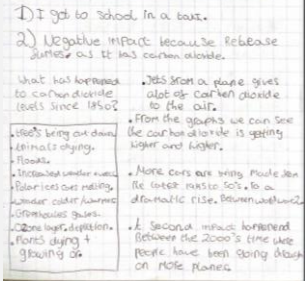 1) I got to school in a taxi.
2) Negative impact because Release
as it has carbon dioxide.
What has happened
to carbon dioxide
levels since 1850?
• Trees being cut down
• Animals dying.
• Floods.
• Increased weather events
• Polar ices are melting.
• colder
• Greenhouses gases.
• Ozone layer, depletion.
• Plants dying +
growing or
• Jets from a plane gives
alot of carbon dioxide
to the air.
• From the graphs we can see
the carbon dioxide is getting
higher and higher.
• More cars are being made
the to 50's. to a
dramatic rise. Between
• A second impact happened
Between the 2000's time where
people have been going
on more planes.